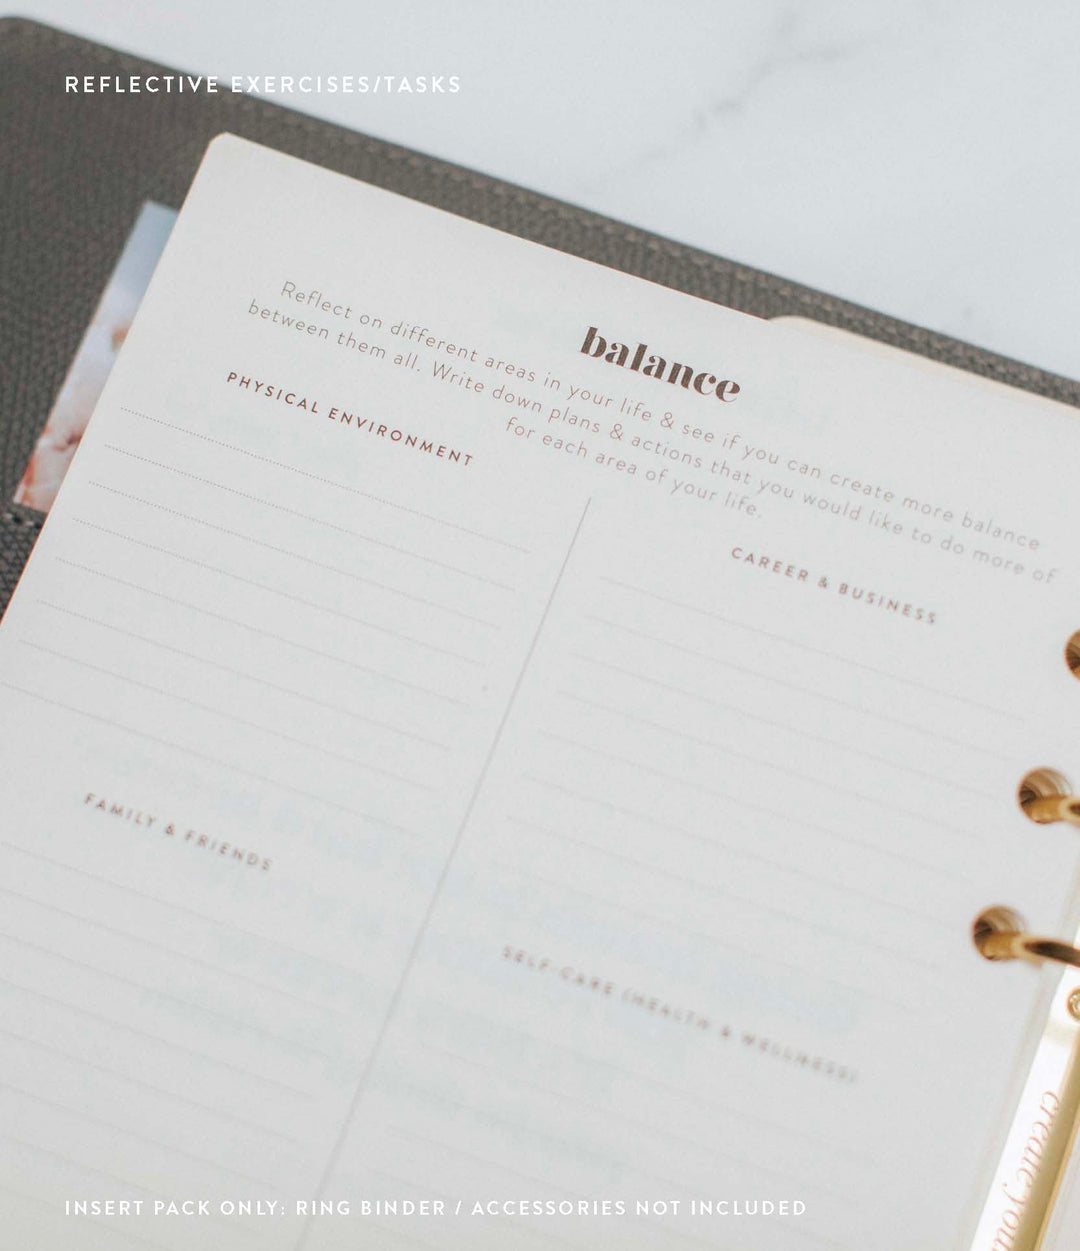 REFLECTIVE EXERCISES/TASKS
balance
Reflect on different areas in your life & see if you can create more balance
between them all. Write down plans & actions that you would like to do more of
for each area of your life.
PHYSICAL ENVIRONMENT
CAREER & BUSINESS
FAMILY & FRIENDS
SELF-CARE (HEALTH & WELLNESS)
create you
INSERT PACK ONLY: RING BINDER / ACCESSORIES NOT INCLUDED